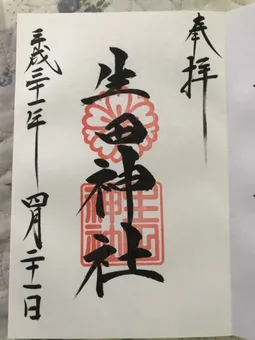 奉拝
生田神社
平成三十一年四月二十一日
生田
神社